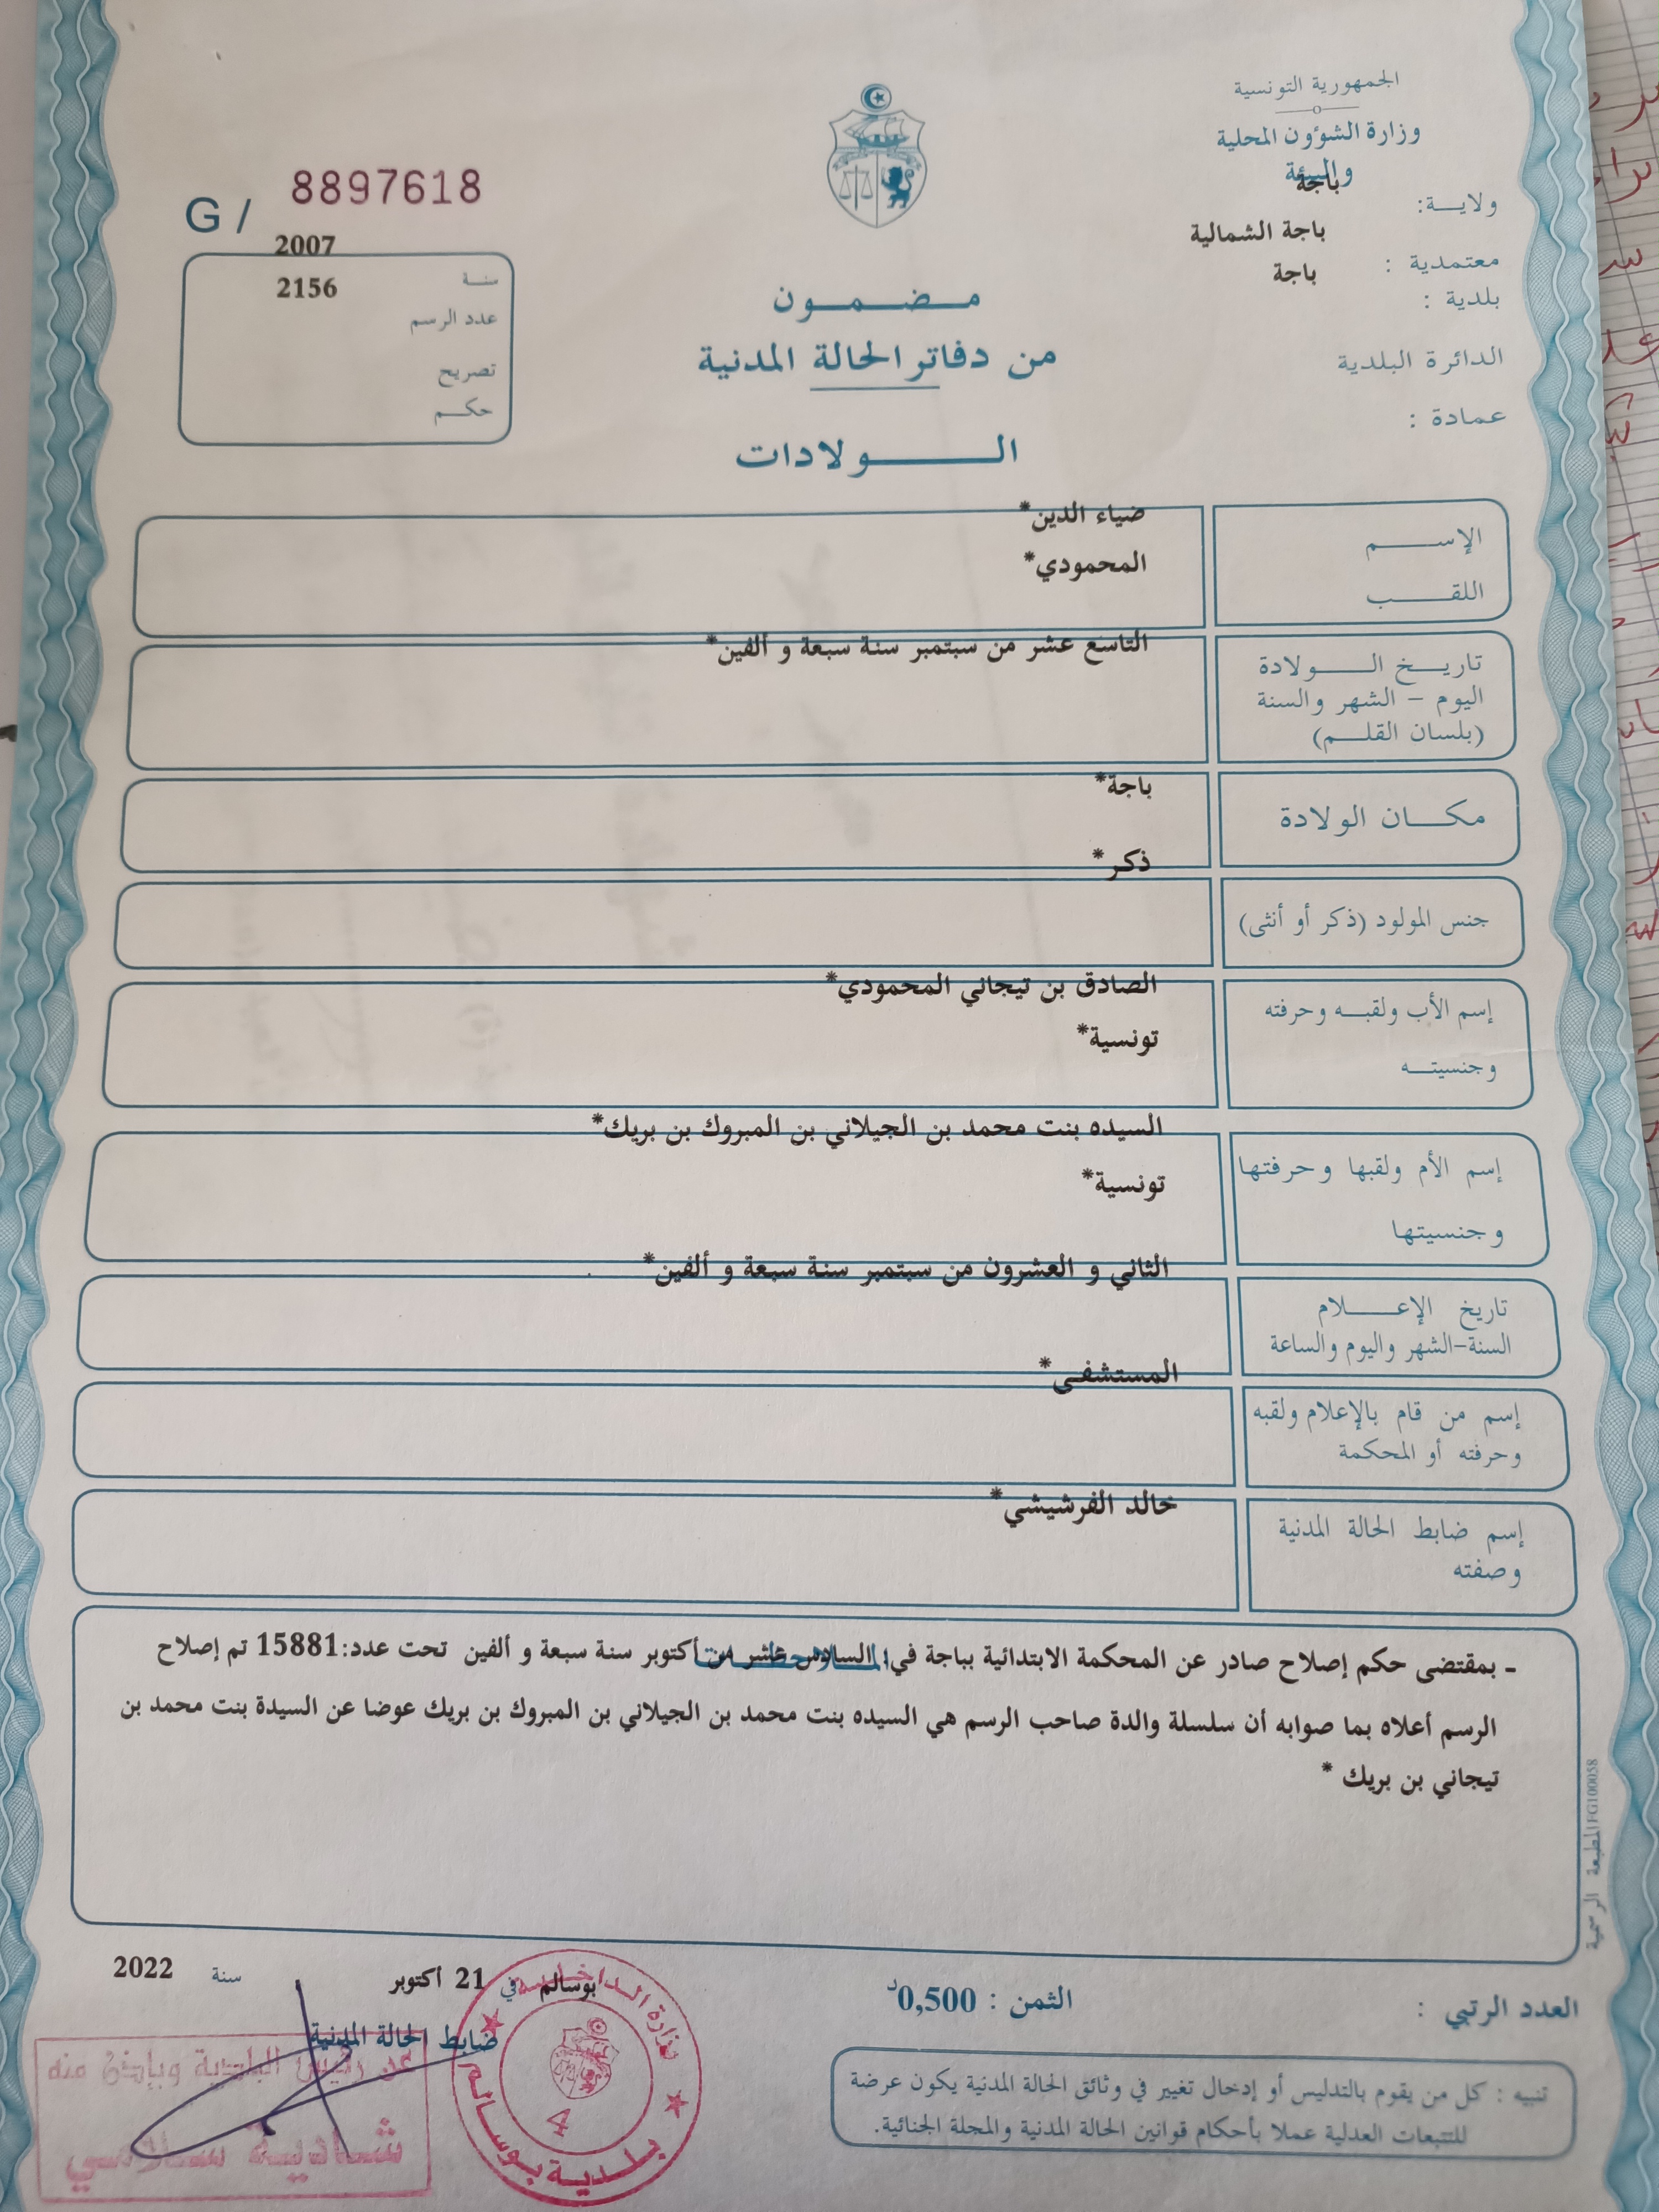 الجمهورية التونسية
وزارة الشؤون المحلية
والبيئة
ولايـــة: باجة
معتمدية : باجة الشمالية
بلدية : باجة
الدائرة البلدية
عمادة :
G / 8897618
سنـة 2007
عدد الرسم 2156
تصريح
حكـم
مـضـمـون
من دفاتر الحالة المدنية
الـولادات
الإســـم ضياء الدين*
اللقـــب المحمودي*
تاريـخ الـــولادة التاسع عشر من سبتمبر سنة سبعة و ألفين*
اليوم - الشهر والسنة
(بلسان القلـم)
مكـان الولادة باجة*
جنس المولود (ذكر أو أنثى) ذكر*
إسم الأب ولقبـه وحرفته الصادق بن تيجاني المحمودي*
وجنسيتـه تونسية*
إسم الأم ولقبها وحرفتها السيده بنت محمد بن الجيلاني بن المبروك بن بريك*
وجنسيتها تونسية*
تاريخ الإعـــلام الثاني و العشرون من سبتمبر سنة سبعة و ألفين*
السنة-الشهر واليوم والساعة
إسم من قام بالإعلام ولقبه المستشفى*
وحرفته أو المحكمة
إسم ضابط الحالة المدنية خالد الفرشيشي*
وصفته
ـ بمقتضى حكم إصلاح صادر عن المحكمة الابتدائية بباجة في: السادس عشر من أكتوبر سنة سبعة و ألفين تحت عدد:15881 تم إصلاح
الرسم أعلاه بما صوابه أن سلسلة والدة صاحب الرسم هي السيده بنت محمد بن الجيلاني بن المبروك بن بريك عوضا عن السيدة بنت محمد بن
تيجاني بن بريك *
المطبعة الرسمية FG100058
العدد الرتبي :
الثمن : 0,500د
بوسالم في 21 أكتوبر سنة 2022
ضابط الحالة المدنية
وزارة الداخلية
بلدية بوسالم
4
عن رئيس البلدية وبإذن منه
تنبيه : كل من يقوم بالتدليس أو إدخال تغيير في وثائق الحالة المدنية يكون عرضة
للتتبعات العدلية عملا بأحكام قوانين الحالة المدنية والمجلة الجنائية.